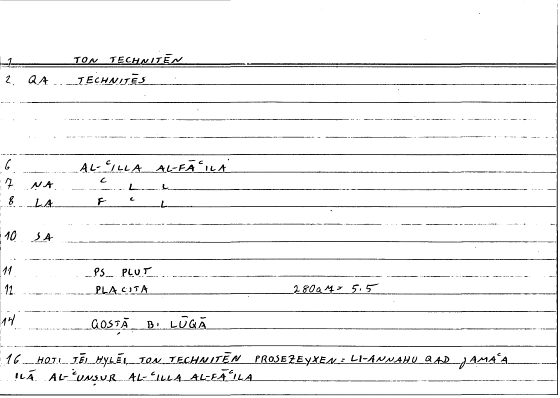 1 TON TECHNITĒN
2 QA TECHNITĒS
6 AL-ʿILLA AL-FĀʿILA
7 NA ʿ L L
8 LA F ʿ L
10 SA
11 PS PLUT
12 PLACITA 280a17= 5.5
14 QOSṬĀ B. LŪQĀ
16 HOTI TĒI HYLĒI TON TECHNITĒN PROSEZEYXEN = LI-ANNAHU QAD JAMAʿA
ILĀ AL-ʿUNṢUR AL-ʿILLA AL-FĀʿILA